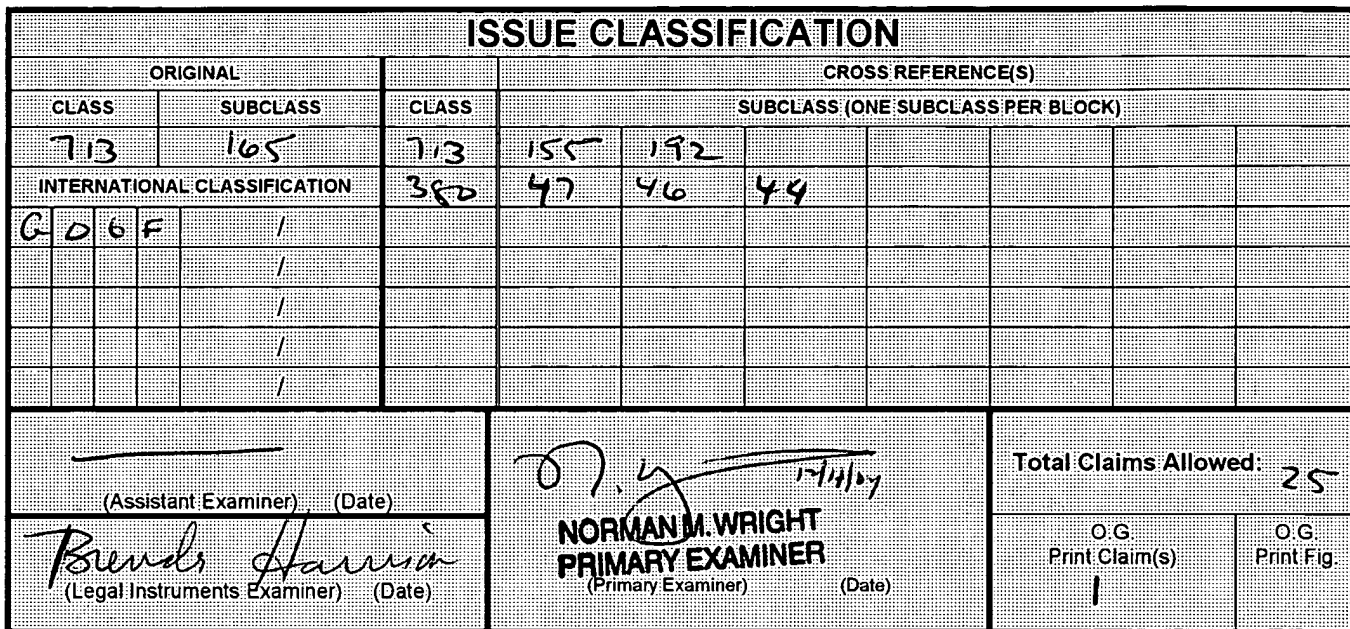 ISSUE CLASSIFICATION
ORIGINAL CROSS REFERENCE(S)
CLASS SUBCLASS CLASS SUBCLASS (ONE SUBCLASS PER BLOCK)
713 165 713 155 192
INTERNATIONAL CLASSIFICATION 380 47 46 44
G 0 6 F /
/
/
/
/
(Assistant Examiner) (Date)
Brenda Harrison
(Legal Instruments Examiner) (Date)
NORMAN M. WRIGHT
PRIMARY EXAMINER
(Primary Examiner) (Date)
Total Claims Allowed: 25
O.G. Print Claim(s)
1
O.G. Print Fig.